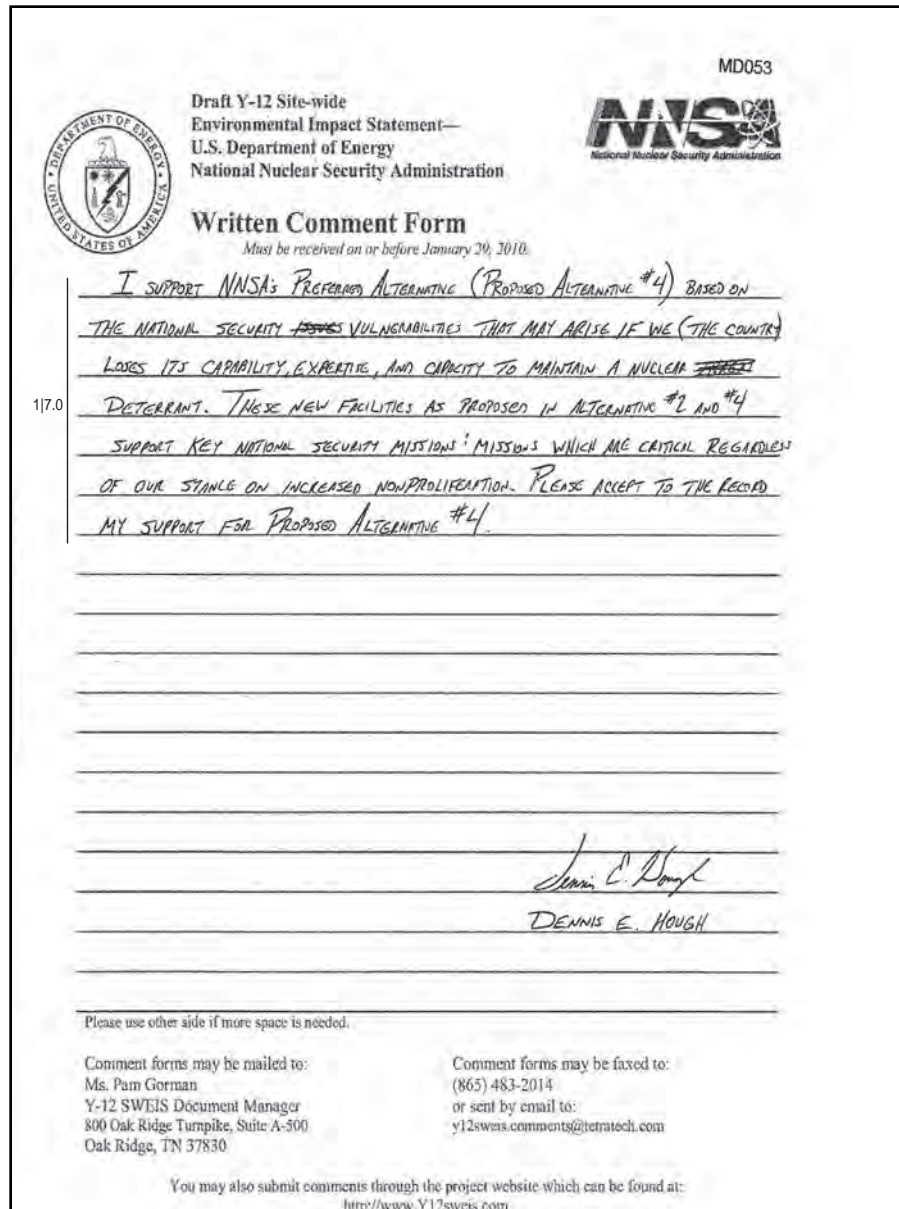 MD053
Draft Y-12 Site-wide
Environmental Impact Statement—
U.S. Department of Energy
National Nuclear Security Administration
NNSA
National Nuclear Security Administration
DEPARTMENT OF ENERGY
UNITED STATES OF AMERICA
Written Comment Form
Must be received on or before January 29, 2010.
I SUPPORT NNSA's PREFERRED ALTERNATIVE (PROPOSED ALTERNATIVE #4) BASED ON
THE NATIONAL SECURITY ISSUES VULNERABILITIES THAT MAY ARISE IF WE (THE COUNTRY)
LOSES ITS CAPABILITY, EXPERTISE, AND CAPACITY TO MAINTAIN A NUCLEAR
1|7.0
DETERRANT. THESE NEW FACILITIES AS PROPOSED IN ALTERNATIVE #2 AND #4
SUPPORT KEY NATIONAL SECURITY MISSIONS: MISSIONS WHICH ARE CRITICAL REGARDLESS
OF OUR STANCE ON INCREASED NONPROLIFERATION. PLEASE ACCEPT TO THE RECORD
MY SUPPORT FOR PROPOSED ALTERNATIVE #4.
Dennis E. Hough
DENNIS E. HOUGH
Please use other side if more space is needed.
Comment forms may be mailed to:
Ms. Pam Gorman
Y-12 SWEIS Document Manager
800 Oak Ridge Turnpike, Suite A-500
Oak Ridge, TN 37830
Comment forms may be faxed to:
(865) 483-2014
or sent by email to:
y12sweis.comments@tetratech.com
You may also submit comments through the project website which can be found at:
http://www.Y12sweis.com